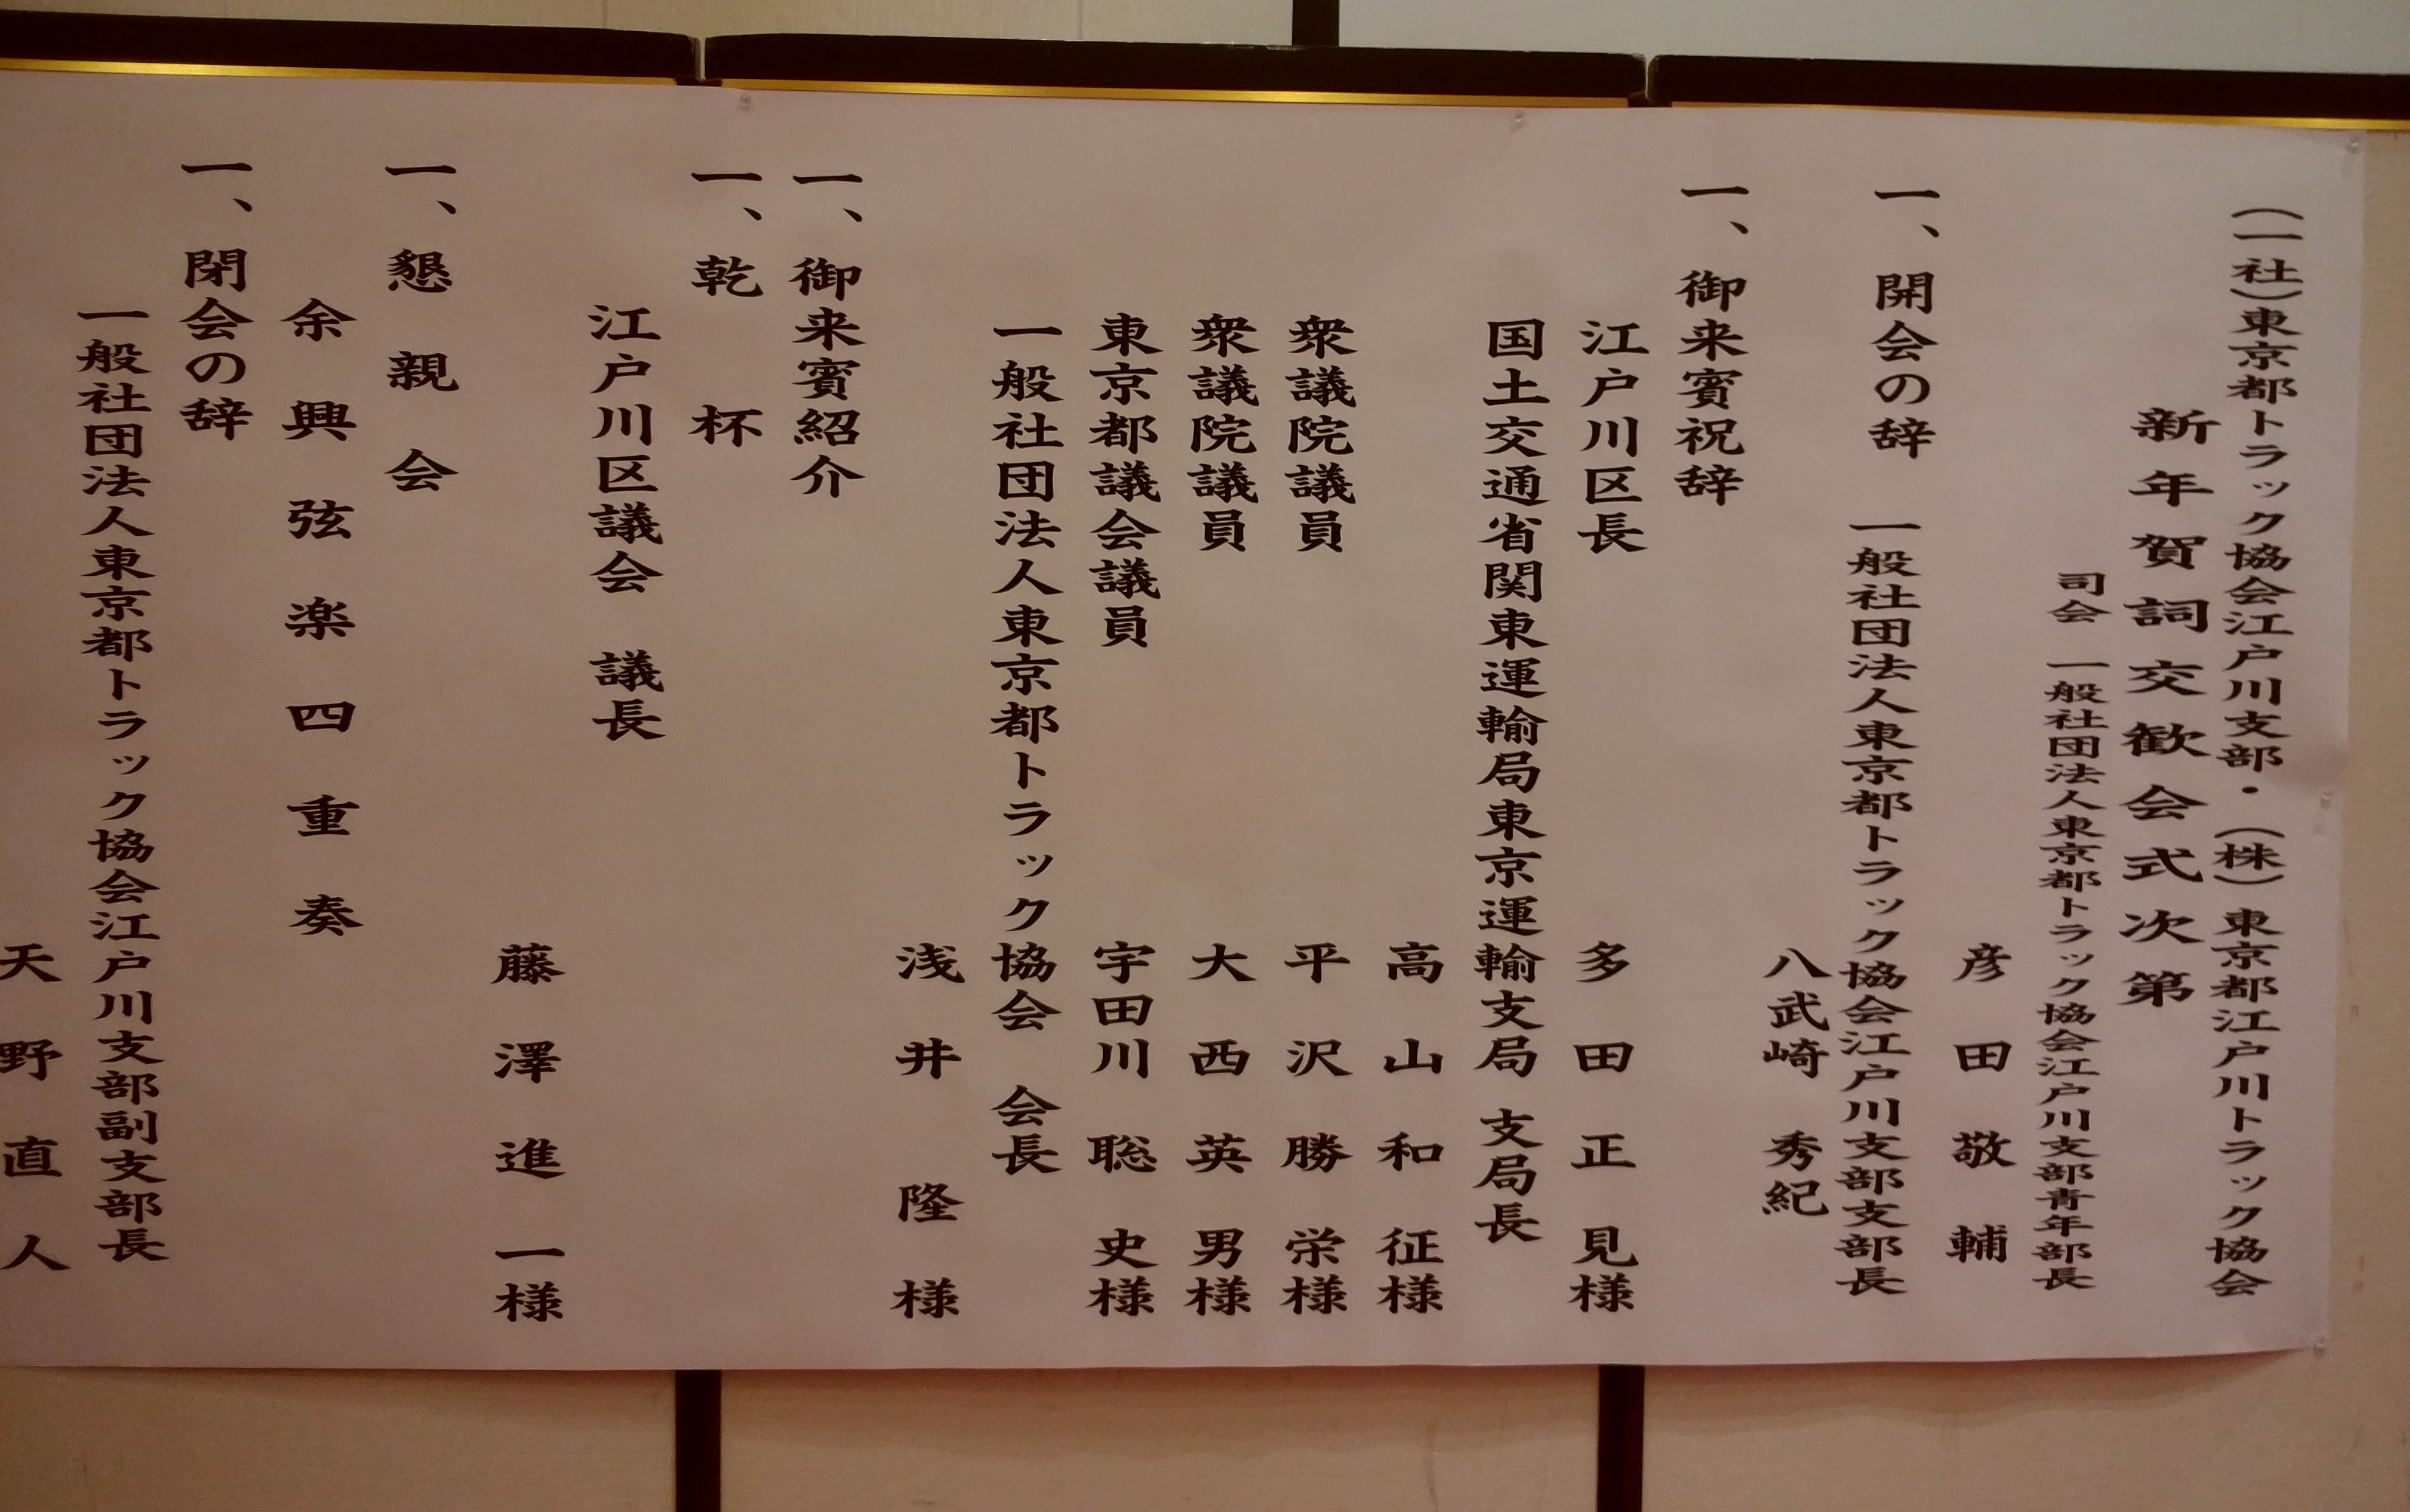 (一社)東京都トラック協会江戸川支部・(株)東京都江戸川トラック協会
新年賀詞交歓会式次第
司会 一般社団法人東京都トラック協会江戸川支部青年部長
彦田敬輔
一、開会の辞 一般社団法人東京都トラック協会江戸川支部支部長
八武崎 秀紀
一、御来賓祝辞
江戸川区長 多田正見様
国土交通省関東運輸局東京運輸支局 支局長
高山和征様
衆議院議員 平沢勝栄様
衆議院議員 大西英男様
東京都議会議員 宇田川聡史様
一般社団法人東京都トラック協会 会長
浅井隆様
一、御来賓紹介
一、乾杯
江戸川区議会 議長
藤澤進一様
一、懇親会
余興弦楽四重奏
一、閉会の辞
一般社団法人東京都トラック協会江戸川支部副支部長
天野直人